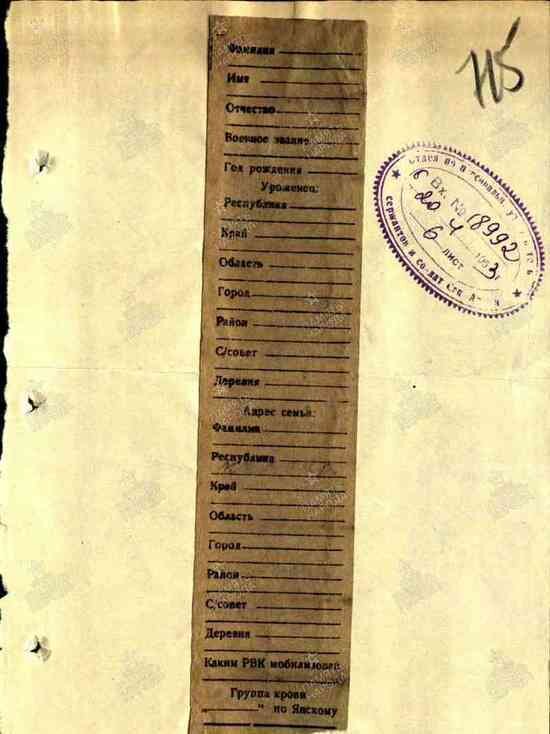 115
Фамилия
Имя
Отчество
Военное звание
Год рождения
Уроженец:
Республика
Край
Область
Город
Район
С/совет
Деревня
Адрес семьи:
Фамилия
Республика
Край
Область
Город
Район
С/совет
Деревня
Каким РВК мобилизован
Группа крови
" по Янскому
Вх. № 18992
20 4 1953
6 лист
сержантов и солдат